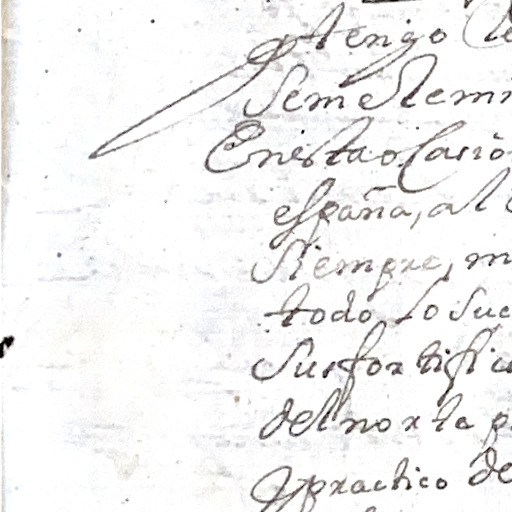 tengo
Enestaocasio
españa, al
Siempre, m
todo lo suc
Susfortific
del norta p
Ypractico de